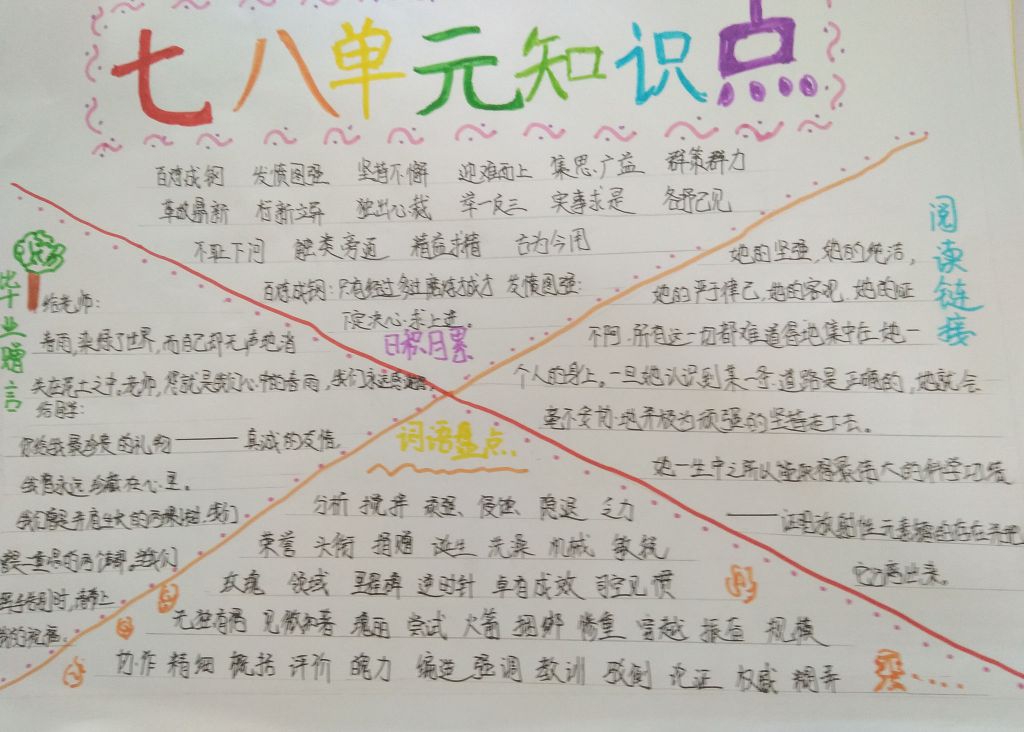 七八单元知识点
百炼成钢 发愤图强 坚持不懈 迎难而上 集思广益 群策群力
革故鼎新 标新立异 独出心裁 举一反三 实事求是 各抒己见
不耻下问 触类旁通 精益求精 古为今用
百炼成钢:只有经过多过磨炼成才 发愤图强:
下定决心,求上进。
日积月累
毕业赠言
给老师:
春雨,染绿了世界,而自己却无声地消
失在泥土之中。老师,您就是我们心中的春雨,我们永远感谢您。
给同学:
你给我最珍贵的礼物——真诚的友情,
我愿永远珍藏在心里。
我们
的两个
时,请带上
我的祝福。
阅读链接
她的坚强,她的纯洁,
她的严于律己,她的客观,她的公正
不阿,所有这一切都难道得地集中在她一
个人的身上。一旦她认识到某一条道路是正确的,她就会
毫不妥协地并极为顽强的坚持走下去。
她一生中之所以能取得最伟大的科学功绩
——证明放射性元素镭的存在并把
它分离出来。
词语盘点
分析 搅拌 顽强 侵蚀 隐退 乏力
荣誉 头衔 捐赠 诞生 洗澡 机械 敏锐
玫瑰 领域 里程碑 逆时针 卓有成效 司空见惯
无独有偶 见微知著 瑰丽 尝试 火箭 捆绑 修复 穿越 振奋 规模
协作 精细 概括 评价 魄力 编造 强调 教训 驳倒 论证 权威 糊弄